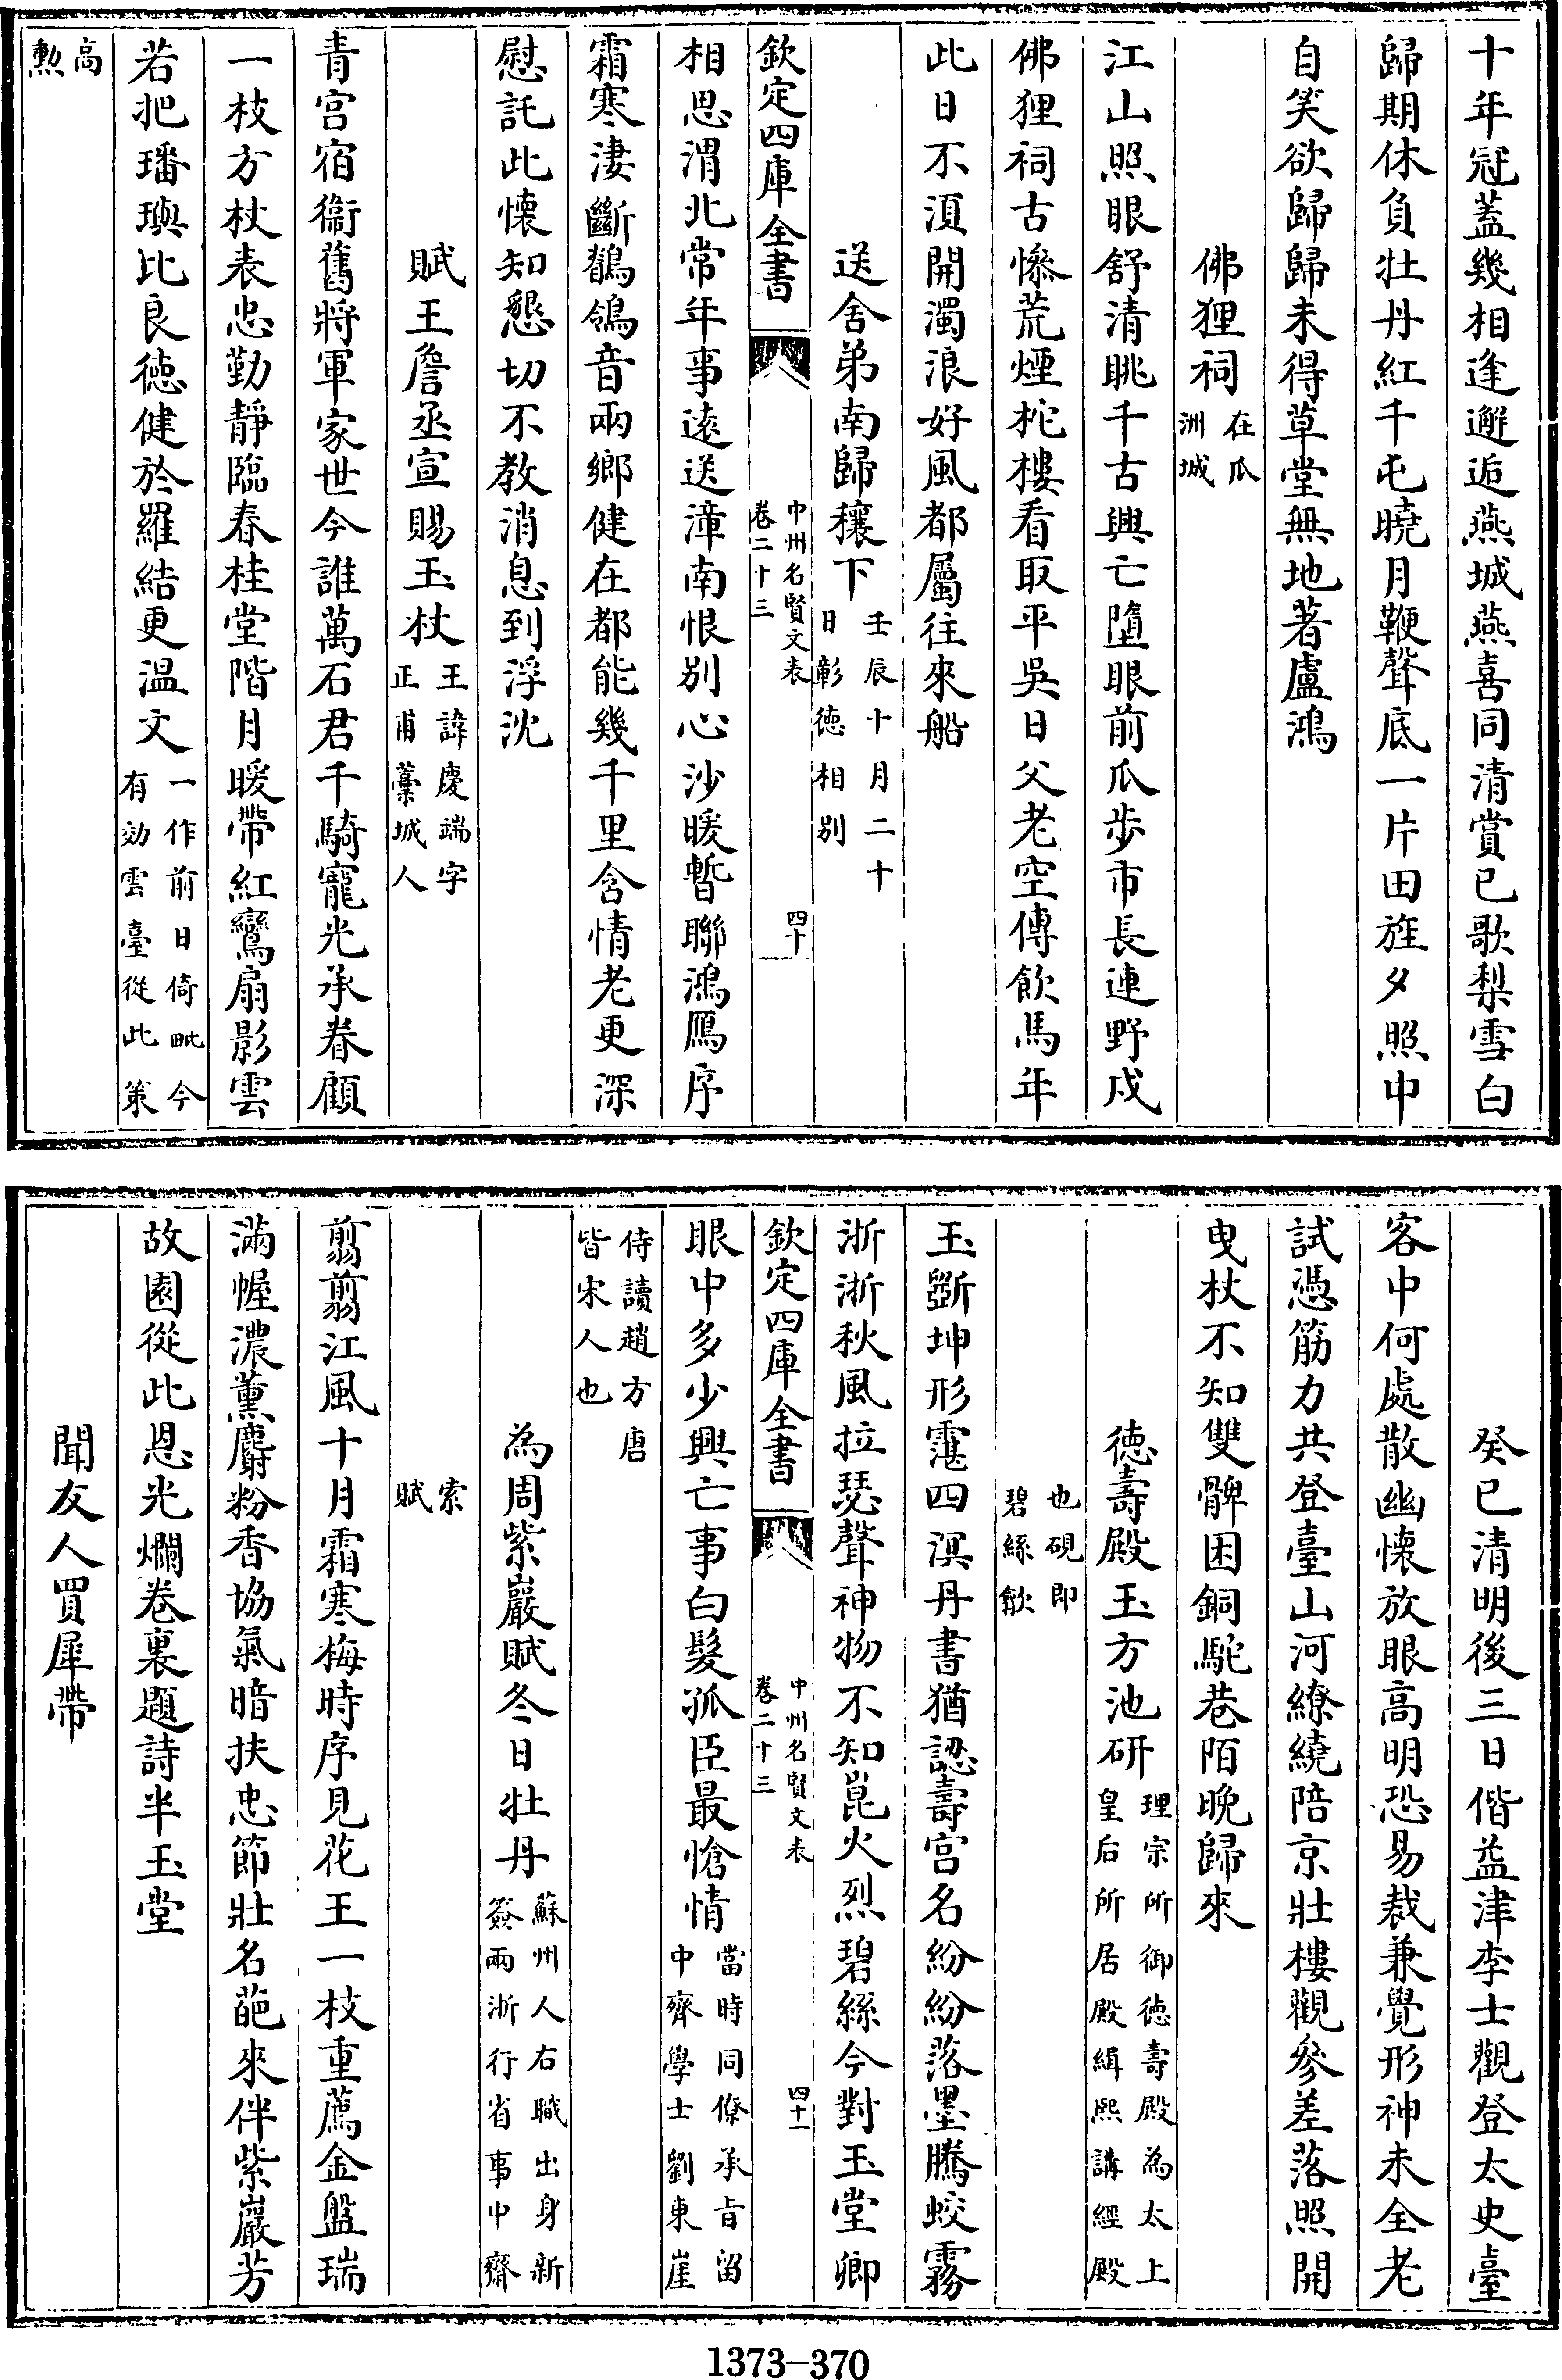 十年冠蓋幾相逢邂逅燕城燕喜同清賞已歌梨雪白
歸期休負牡丹紅千屯曉月鞭聲底一片田旌夕照中
自笑欲歸歸未得草堂無地著盧鴻
佛狸祠在瓜洲城
江山照眼舒清眺千古興亡墮眼前瓜步市長連野戍
佛狸祠古慘荒煙柁樓看取平吳日父老空傳飲馬年
此日不須開濁浪好風都屬往來船
送舍弟南歸穰下壬辰十月二十日彰徳相別
欽定四庫全書
中州名賢文表
卷二十三
四十
相思渭北常年事遠送漳南恨别心沙暖暫聯鴻鴈序
霜寒淒斷鶺鴒音兩鄉健在都能幾千里含情老更深
慰託此懷知懇切不教消息到浮沈
賦王詹丞宣賜玉杖王諱慶端字正甫藁城人
青宫宿衞舊將軍家世今誰萬石君千騎寵光承眷顧
一枝方杖表忠勤靜臨春桂堂階月暖帶紅鸞扇影雲
若把璠璵比良徳健於羅結更温文一作前日倚毗今有効雲臺從此策
高勲
癸已清明後三日偕益津李士觀登太史臺
客中何處散幽懷放眼高明恐易裁兼覺形神未全老
試憑筋力共登臺山河繚繞陪京壯樓觀參差落照開
曳杖不知雙髀困銅駝巷陌晩歸來
徳壽殿玉方池研理宗所御徳壽殿為太上皇后所居殿緝熙講經殿
也硯即碧絲歙
玉斵坤形窪四溟丹書猶認壽宫名紛紛落墨騰蛟霧
浙浙秋風拉瑟聲神物不知崑火烈碧絲今對玉堂卿
欽定四庫全書
中州名賢文表
卷二十三
四十一
眼中多少興亡事白髮孤臣最愴情當時同僚承㫖留中齊學士劉東崖
侍讀趙方唐皆宋人也
為周紫巖賦冬日牡丹蘇州人右職出身新簽兩浙行省事中齊
索賦
翦翦江風十月霜寒梅時序見花王一枝重薦金盤瑞
滿幄濃薰麝粉香協氣暗扶忠節壯名葩來伴紫巖芳
故園從此恩光爛卷裏題詩半玉堂
聞友人買犀帶
1373-370